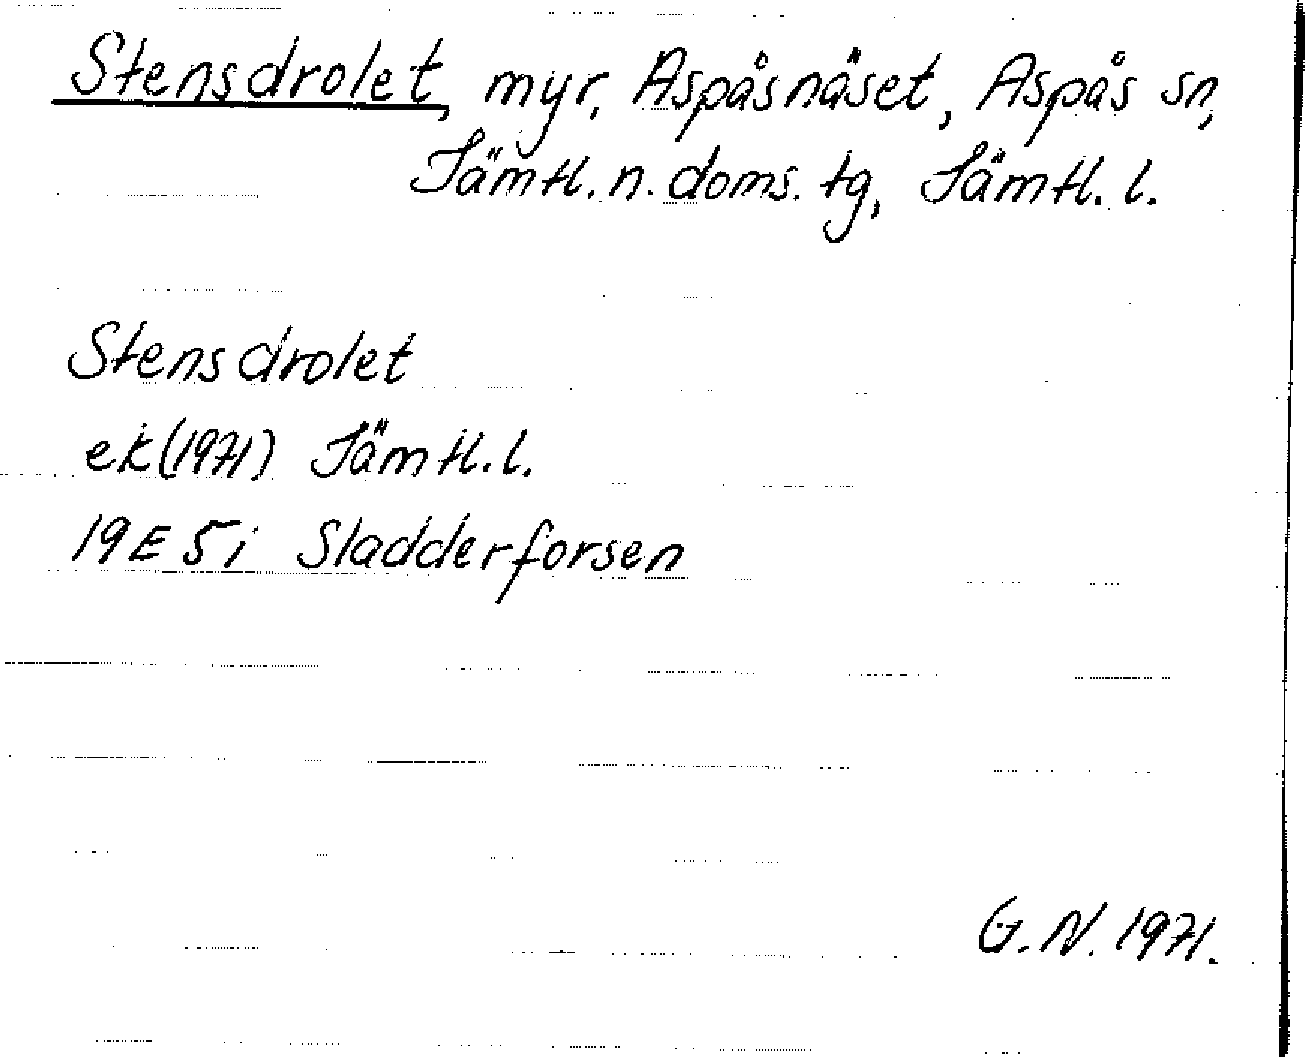 Stensdrolet, myr, Aspåsnäset, Aspås sn,
Jämtl. n. doms. tg, Jämtl. l.
Stensdrolet
ek (1971) Jämtl. l.
19E 5i Sladderforsen
G. N. 1971.